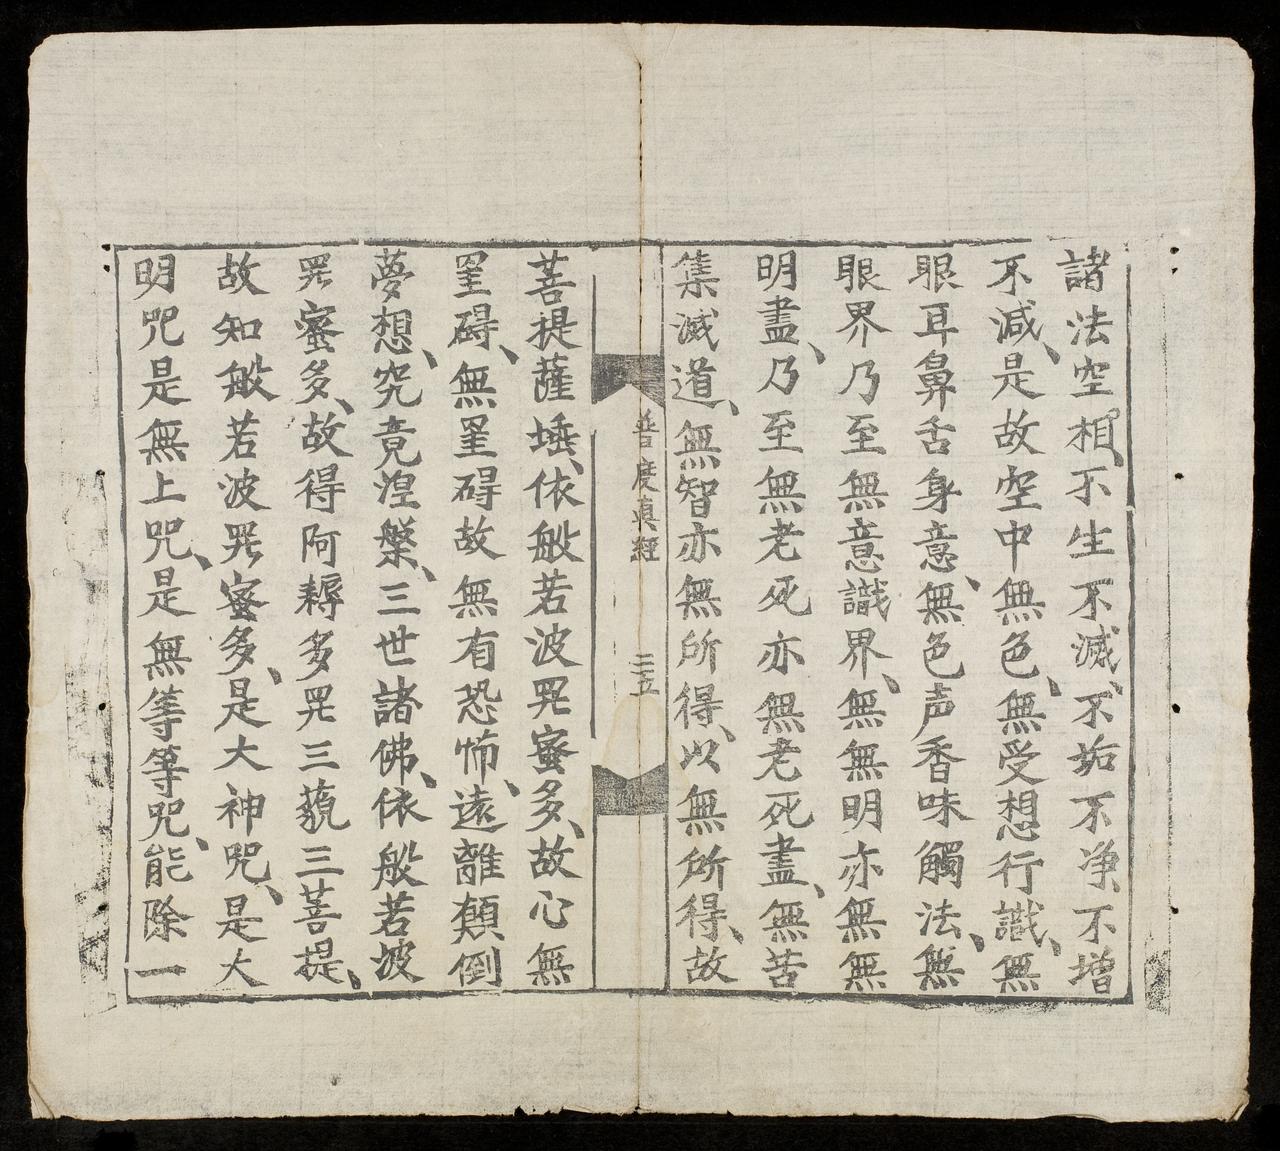 諸法空相、不生不滅、不垢不净、不增
不減、是故空中無色、無受想行識、無
眼耳鼻舌身意、無色声香味觸法、無
眼界乃至無意識界、無無明亦無無
明盡、乃至無老死亦無老死盡、無苦
集滅道、無智亦無所得、以無所得、故
普度真經
二五
菩提薩埵、依般若波罗蜜多、故心無
罣碍、無罣碍故無有恐怖、遠離顛倒
夢想、究竟涅槃、三世諸佛、依般若波
罗蜜多、故得阿耨多罗三藐三菩提、
故知般若波罗蜜多、是大神咒、是大
明咒是無上咒、是無等等咒、能除一